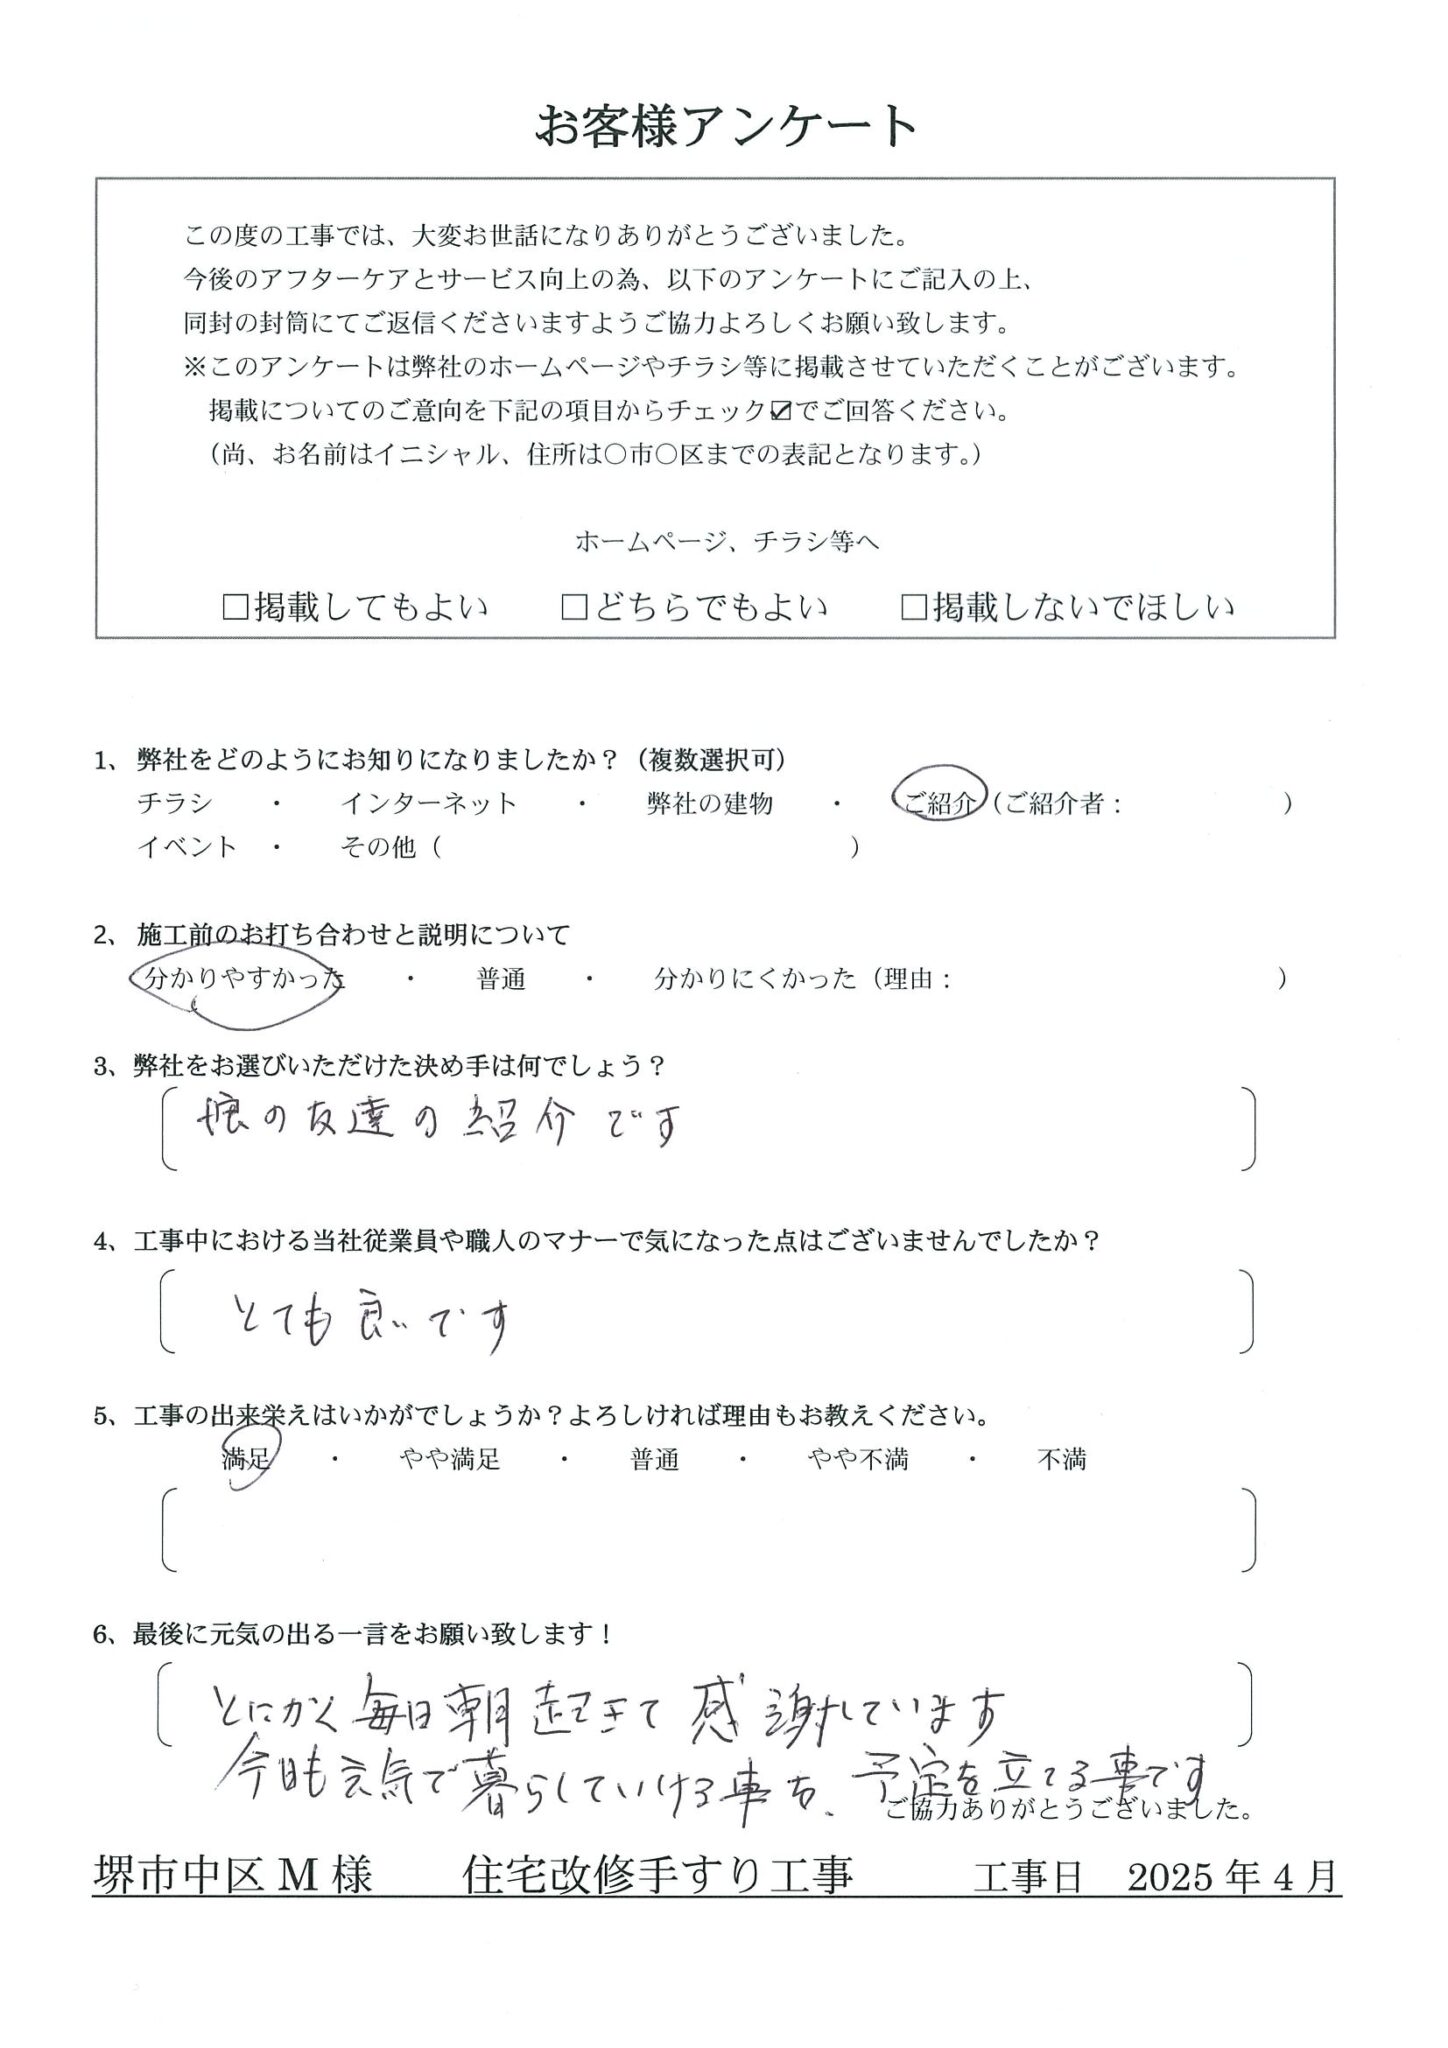 お客様アンケート
この度の工事では、大変お世話になりありがとうございました。
今後のアフターケアとサービス向上の為、以下のアンケートにご記入の上、
同封の封筒にてご返信くださいますようご協力よろしくお願い致します。
※このアンケートは弊社のホームページやチラシ等に掲載させていただくことがございます。
掲載についてのご意向を下記の項目からチェック☑でご回答ください。
（尚、お名前はイニシャル、住所は〇市〇区までの表記となります。）
ホームページ、チラシ等へ
□掲載してもよい　□どちらでもよい　□掲載しないでほしい
1、弊社をどのようにお知りになりましたか？（複数選択可）
チラシ　・　インターネット　・　弊社の建物　・　ご紹介（ご紹介者：　　　）
イベント　・　その他（　　　）
2、施工前のお打ち合わせと説明について
分かりやすかった　・　普通　・　分かりにくかった（理由：　　　）
3、弊社をお選びいただけた決め手は何でしょう？
娘の友達の紹介です
4、工事中における当社従業員や職人のマナーで気になった点はございませんでしたか？
とても良いです
5、工事の出来栄えはいかがでしょうか？よろしければ理由もお教えください。
満足　・　やや満足　・　普通　・　やや不満　・　不満
6、最後に元気の出る一言をお願い致します！
とにかく毎日朝起きて感謝しています
今日も元気で暮らしていける事を、予定を立てる事です
ご協力ありがとうございました。
堺市中区 M 様　住宅改修手すり工事　工事日　2025 年 4 月